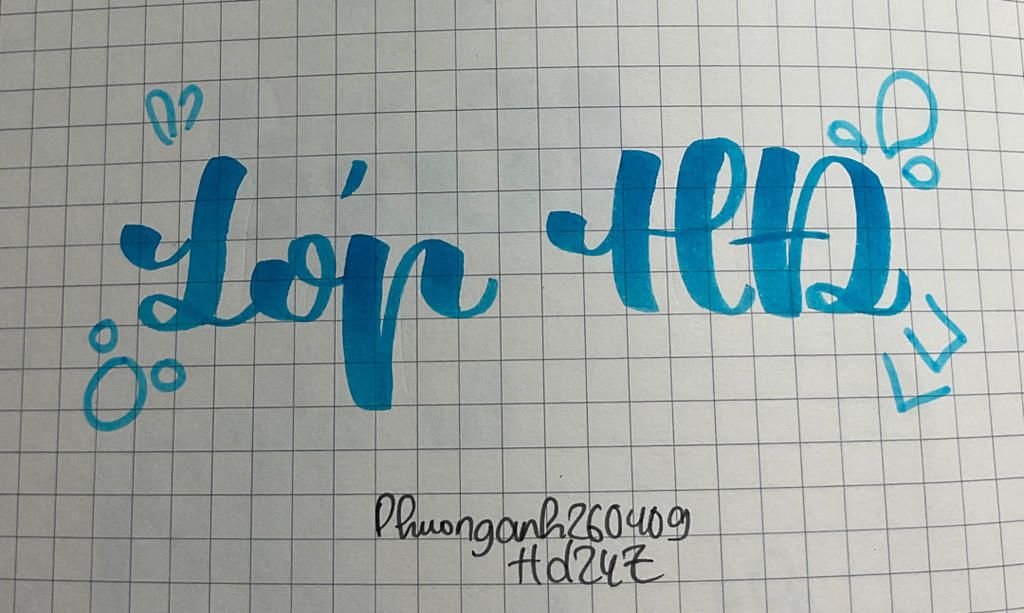 Lớp HD
Phuonganh260409
Hd247